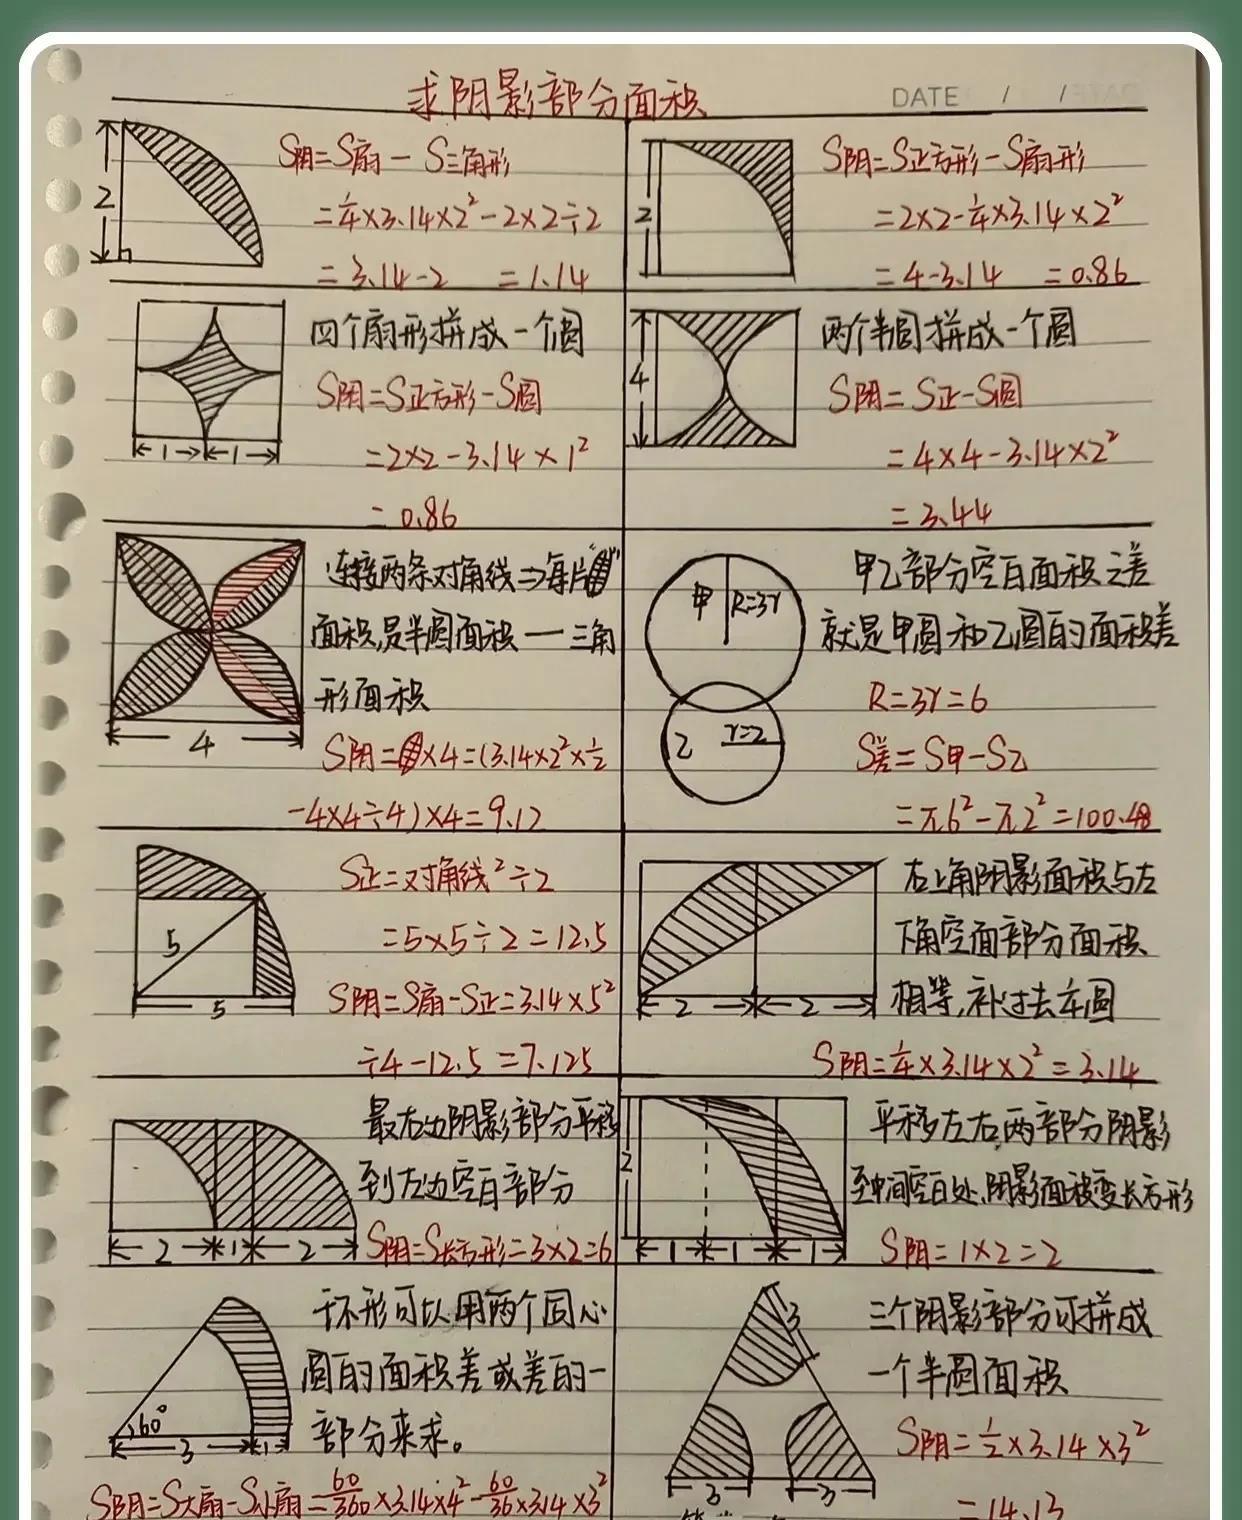 求阴影部分面积
DATE / /
2
S阴=S扇-S三角形
=¼×3.14×2²-2×2÷2
=3.14-2 =1.14
2
S阴=S正方形-S扇形
=2×2-¼×3.14×2²
=4-3.14 =0.86
四个扇形拼成一个圆
S阴=S正方形-S圆
=2×2-3.14×1²
=0.86
1 1
4
两个半圆拼成一个圆
S阴=S正-S圆
=4×4-3.14×2²
=3.44
连接两条对角线⇒每片""
面积,是半圆面积一三角
形面积
S阴=×4=(3.14×2²×½
-4×4÷4)×4=9.12
4
甲 R=3r
乙 r=2
甲乙部分空白面积之差
就是甲圆和乙圆的面积差
R=3r=6
S差=S甲-S乙
=π6²-π2²=100.48
5
5
S正=对角线²÷2
=5×5÷2=12.5
S阴=S扇-S正=3.14×5²
÷4-12.5=7.125
2 2
右上角阴影面积与左
下角空面部分面积
相等,补过去圆
S阴=¼×3.14×2²=3.14
最右边阴影部分平移
到左边空白部分
S阴=S长方形=3×2=6
2 1 2
2
1 1 1
平移左右两部分阴影
至中间空白处,阴影面积变长方形
S阴=1×2=2
60°
3 1
环形可以用两个同心
圆的面积差或差的一
部分来求。
S阴=S大扇-S小扇=60/360×3.14×4²-60/36×3.14×3²
3
3 3
三个阴影部分可拼成
一个半圆面积
S阴=½×3.14×3²
=14.13